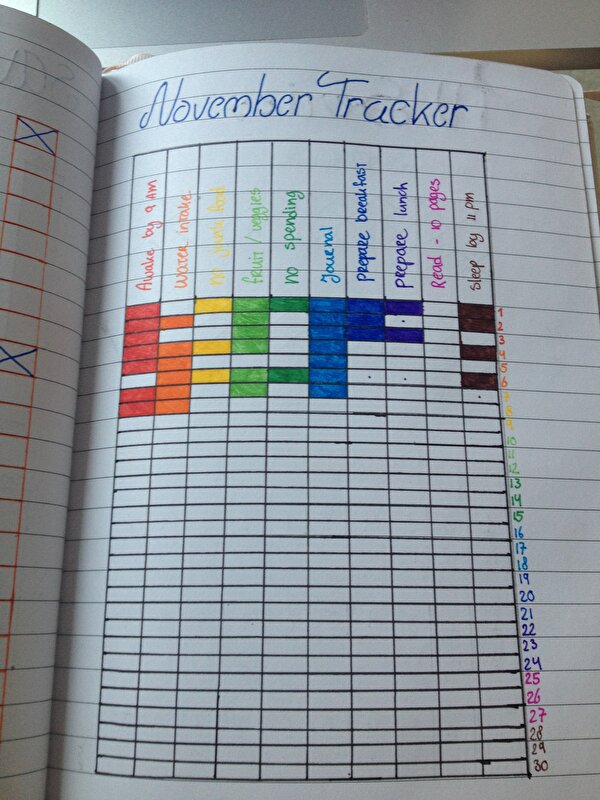 November Tracker
Awake by 9 AM
Water intake
no junk food
fruit / veggies
no spending
Journal
prepare breakfast
prepare lunch
Read - 10 pages
Sleep by 11 pm
1
2
3
4
5
6
7
8
9
10
11
12
13
14
15
16
17
18
19
20
21
22
23
24
25
26
27
28
29
30